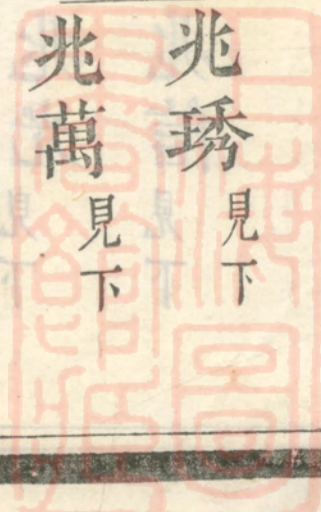 兆琇見下
兆萬見下